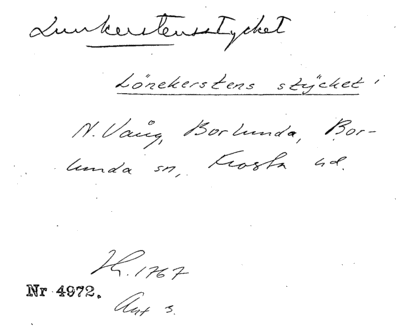 Lunkerstensstycket
Lönekerstens stÿcket
N. Vång, Borlunda, Bor-
lunda sn, Frosta hd.
Lh. 1767
Nr 4972.
Akt 3.